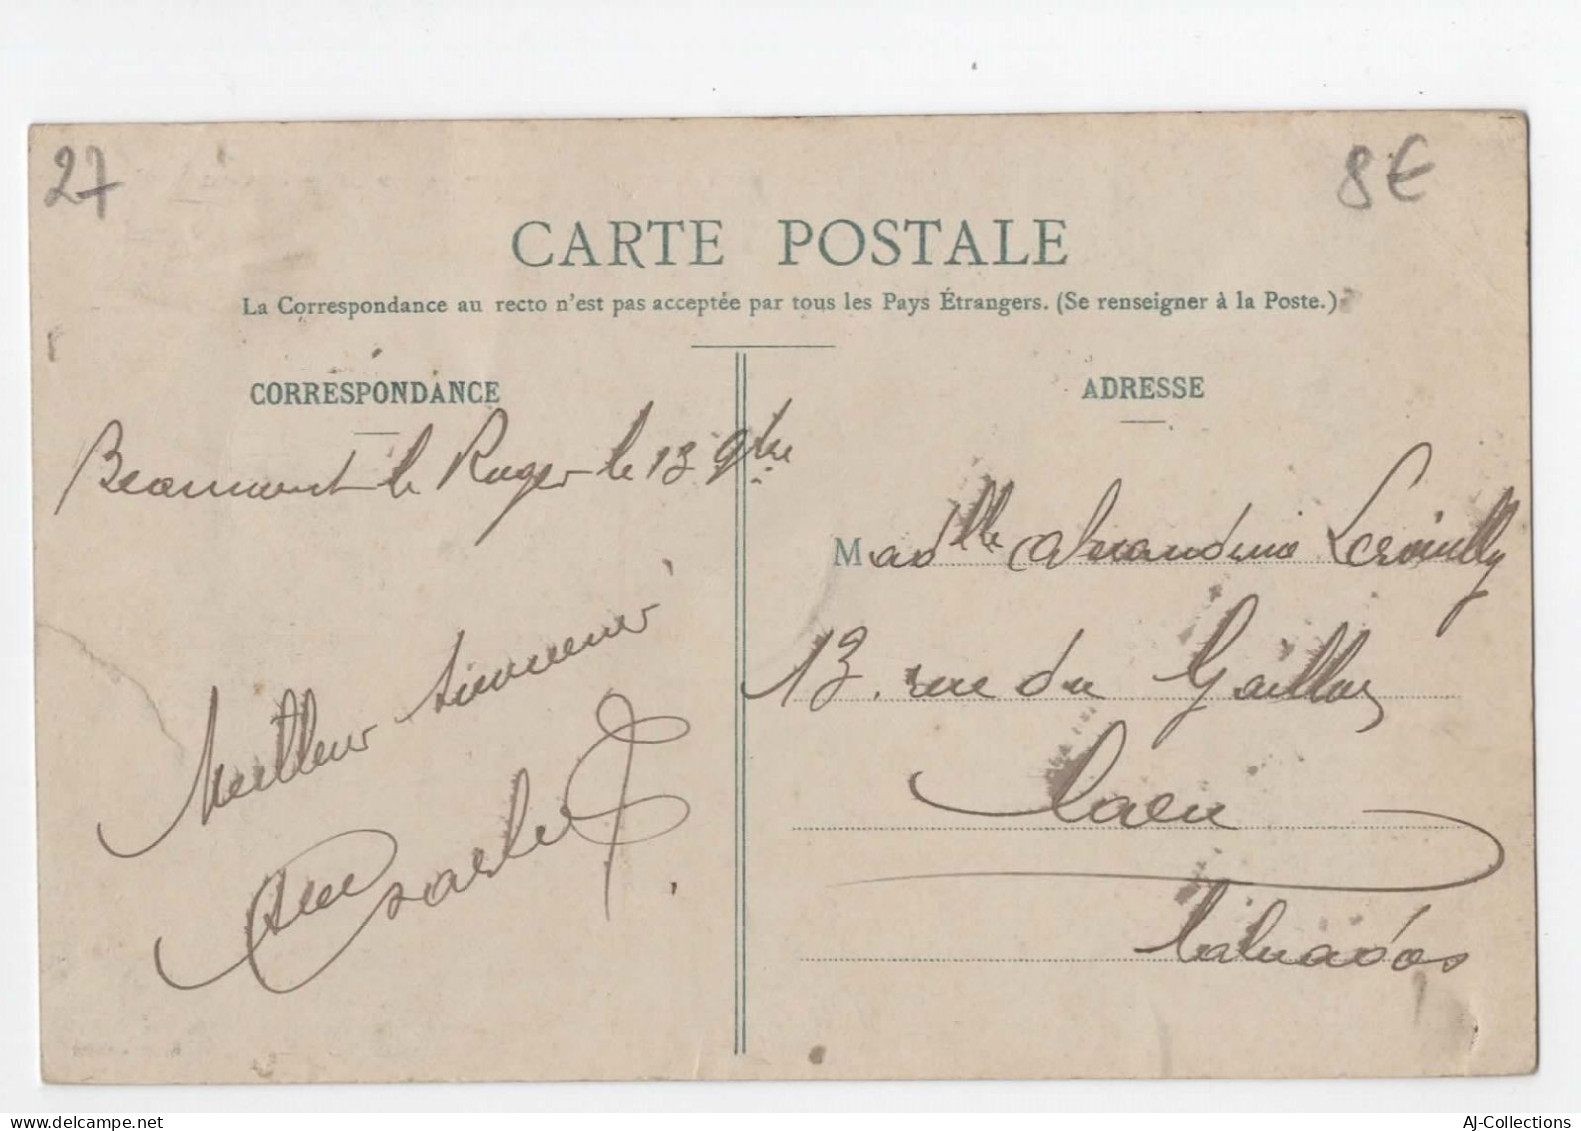 27
8€
CARTE POSTALE
La Correspondance au recto n'est pas acceptée par tous les Pays Étrangers. (Se renseigner à la Poste.)
CORRESPONDANCE
Beaumont le Roger le 13 9bre
Meilleur souvenir
ADRESSE
Madlle Alexandrine
13. rue du Gaillon
Caen
Calvados
AJ-Collections